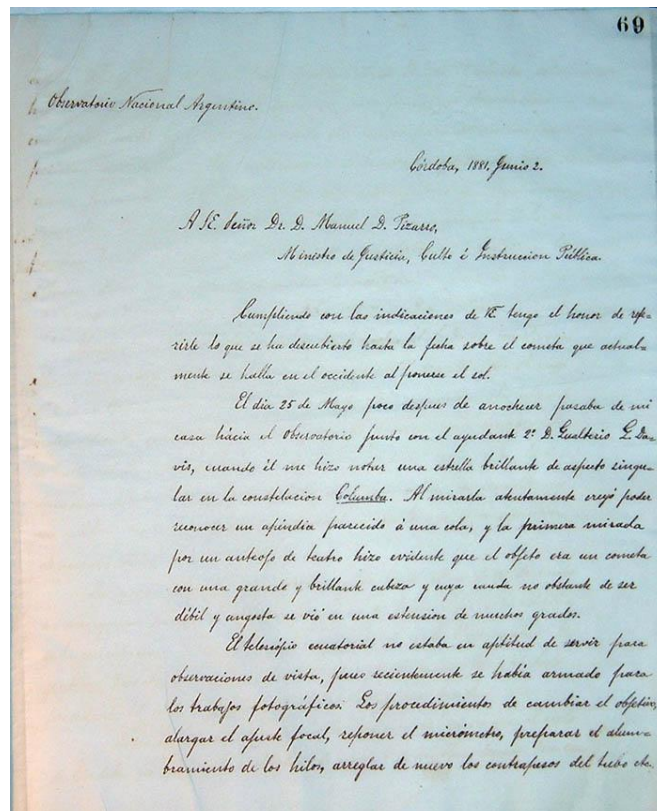 69
Observatorio Nacional Argentino.
Córdoba, 1881. Junio 2.
A S.E. Señor Dr. D. Manuel D. Pizarro,
Ministro de Justicia, Culto é Instruccion Pública.
Cumpliendo con las indicaciones de VE tengo el honor de refe-
rirle lo que se ha descubierto hasta la fecha sobre el cometa que actual-
mente se halla en el occidente al ponerse el sol.
El dia 25 de Mayo poco despues de anochecer pasaba de mi
casa hácia el Observatorio junto con el ayudante 2º D. Gualterio G. Da-
vis, cuando él me hizo notar una estrella brillante de aspecto singu-
lar en la constelacion Columba. Al mirarla atentamente creyó poder
reconocer un apéndia parecido á una cola, y la primera mirada
por un anteojo de teatro hizo evidente que el objeto era un cometa
con una grande y brillante cabeza y cuya cauda no obstante de ser
débil y angosta se vió en una estension de muchos grados.
El telescópio ecuatorial no estaba en aptitud de servir para
observaciones de vista, pues recientemente se habia armado para
los trabajos fotográficos. Los procedimientos de cambiar el objetivo,
alargar el ajuste focal, reponer el micrómetro, preparar el alum-
bramiento de los hilos, arreglar de nuevo los contrapesos del tubo etc.